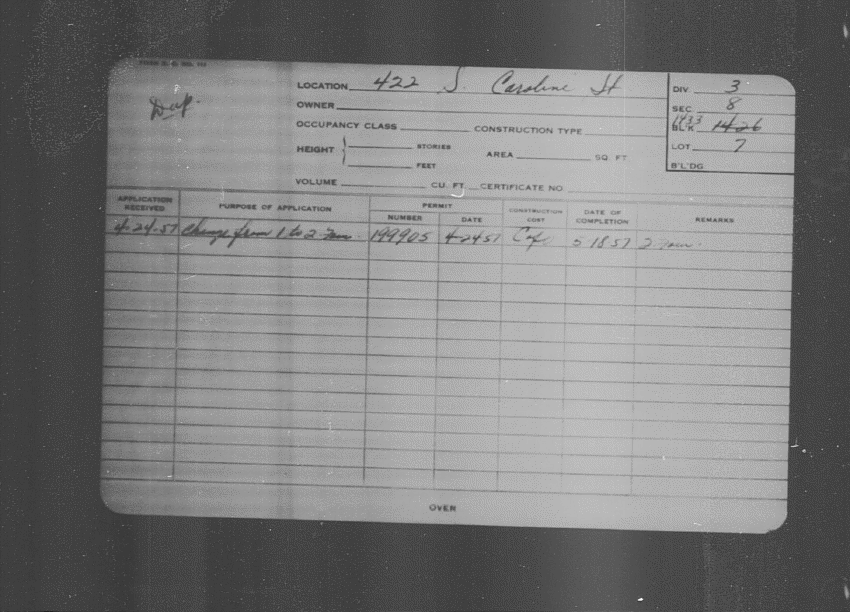 LOCATION 422 S. Caroline St
DIV. 3
Dup.
OWNER
SEC. 8
OCCUPANCY CLASS CONSTRUCTION TYPE
1433
BL'K 1426
HEIGHT STORIES
FEET
AREA SQ. FT.
LOT 7
B'L'DG.
VOLUME CU. FT. CERTIFICATE NO.
APPLICATION RECEIVED PURPOSE OF APPLICATION PERMIT NUMBER DATE CONSTRUCTION COST DATE OF COMPLETION REMARKS
4-24-57 Change from 1 to 2 Fam. 199905 4-24-57 5 18 57 2 Fam.
OVER